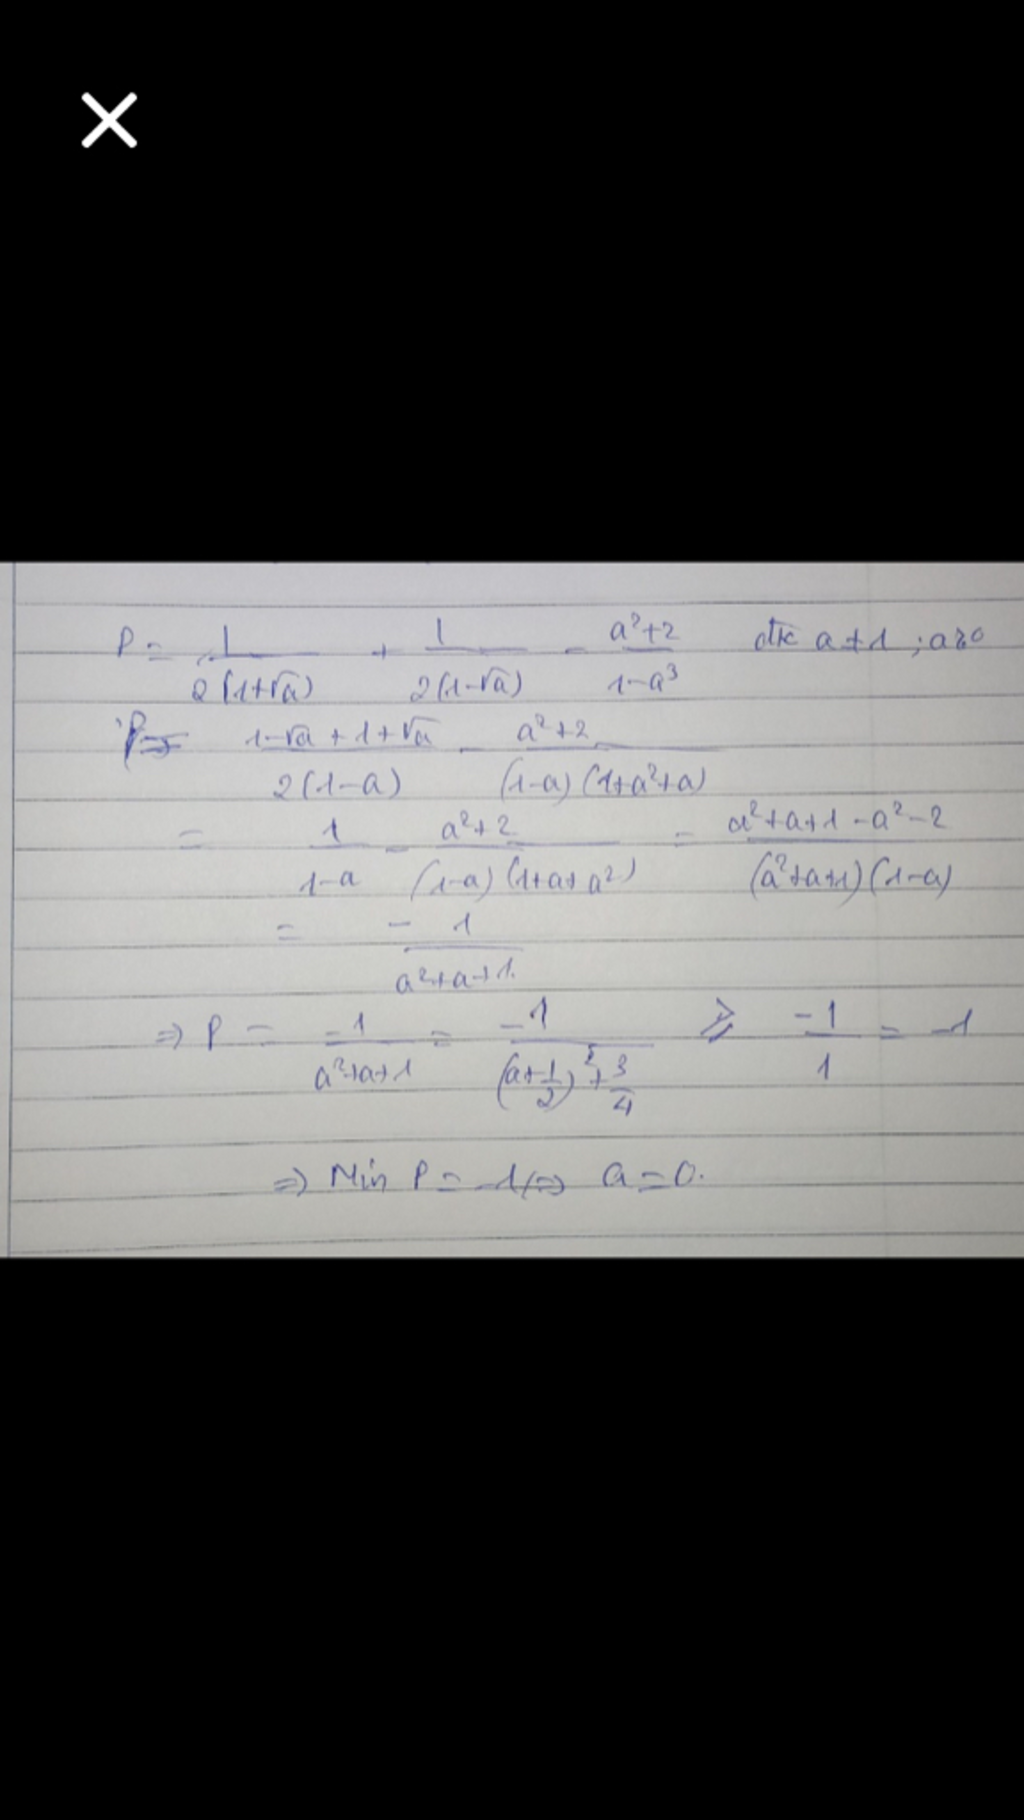 P = 1/(2(1+√a)) + 1/(2(1-√a)) - (a²+2)/(1-a³) đk a ≠ 1 ; a ≥ 0
P = (1-√a + 1+√a)/(2(1-a)) - (a²+2)/((1-a)(1+a²+a))
= 1/(1-a) - (a²+2)/((1-a)(1+a+a²)) = (a²+a+1-a²-2)/((a²+a+1)(1-a))
= -1/(a²+a+1)
⇒ P = -1/(a²+a+1) = -1/((a+1/2)²+3/4) ≥ -1/1 = -1
⇒ Min P = -1 ⇔ a = 0.